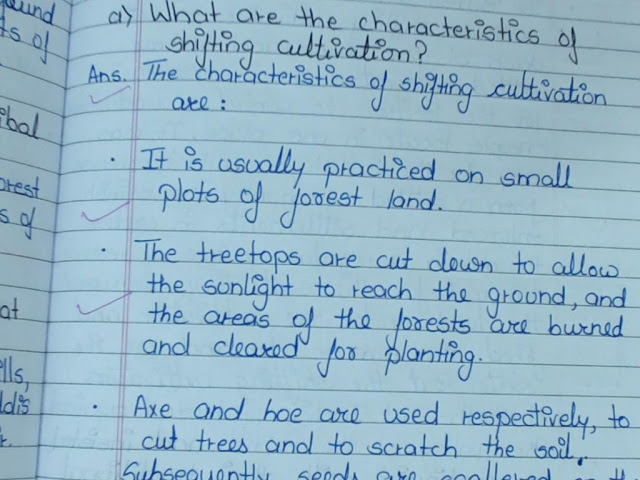 ound
ts of
ibal
orest
s of
at
lls,
ldis
r.
a) What are the characteristics of
shifting cultivation?
Ans. The characteristics of shifting cultivation
are :
· It is usually practiced on small
plots of forest land.
· The treetops are cut down to allow
the sunlight to reach the ground, and
the areas of the forests are burned
and cleared for planting.
· Axe and hoe are used respectively, to
cut trees and to scratch the soil.
Subsequently seeds are